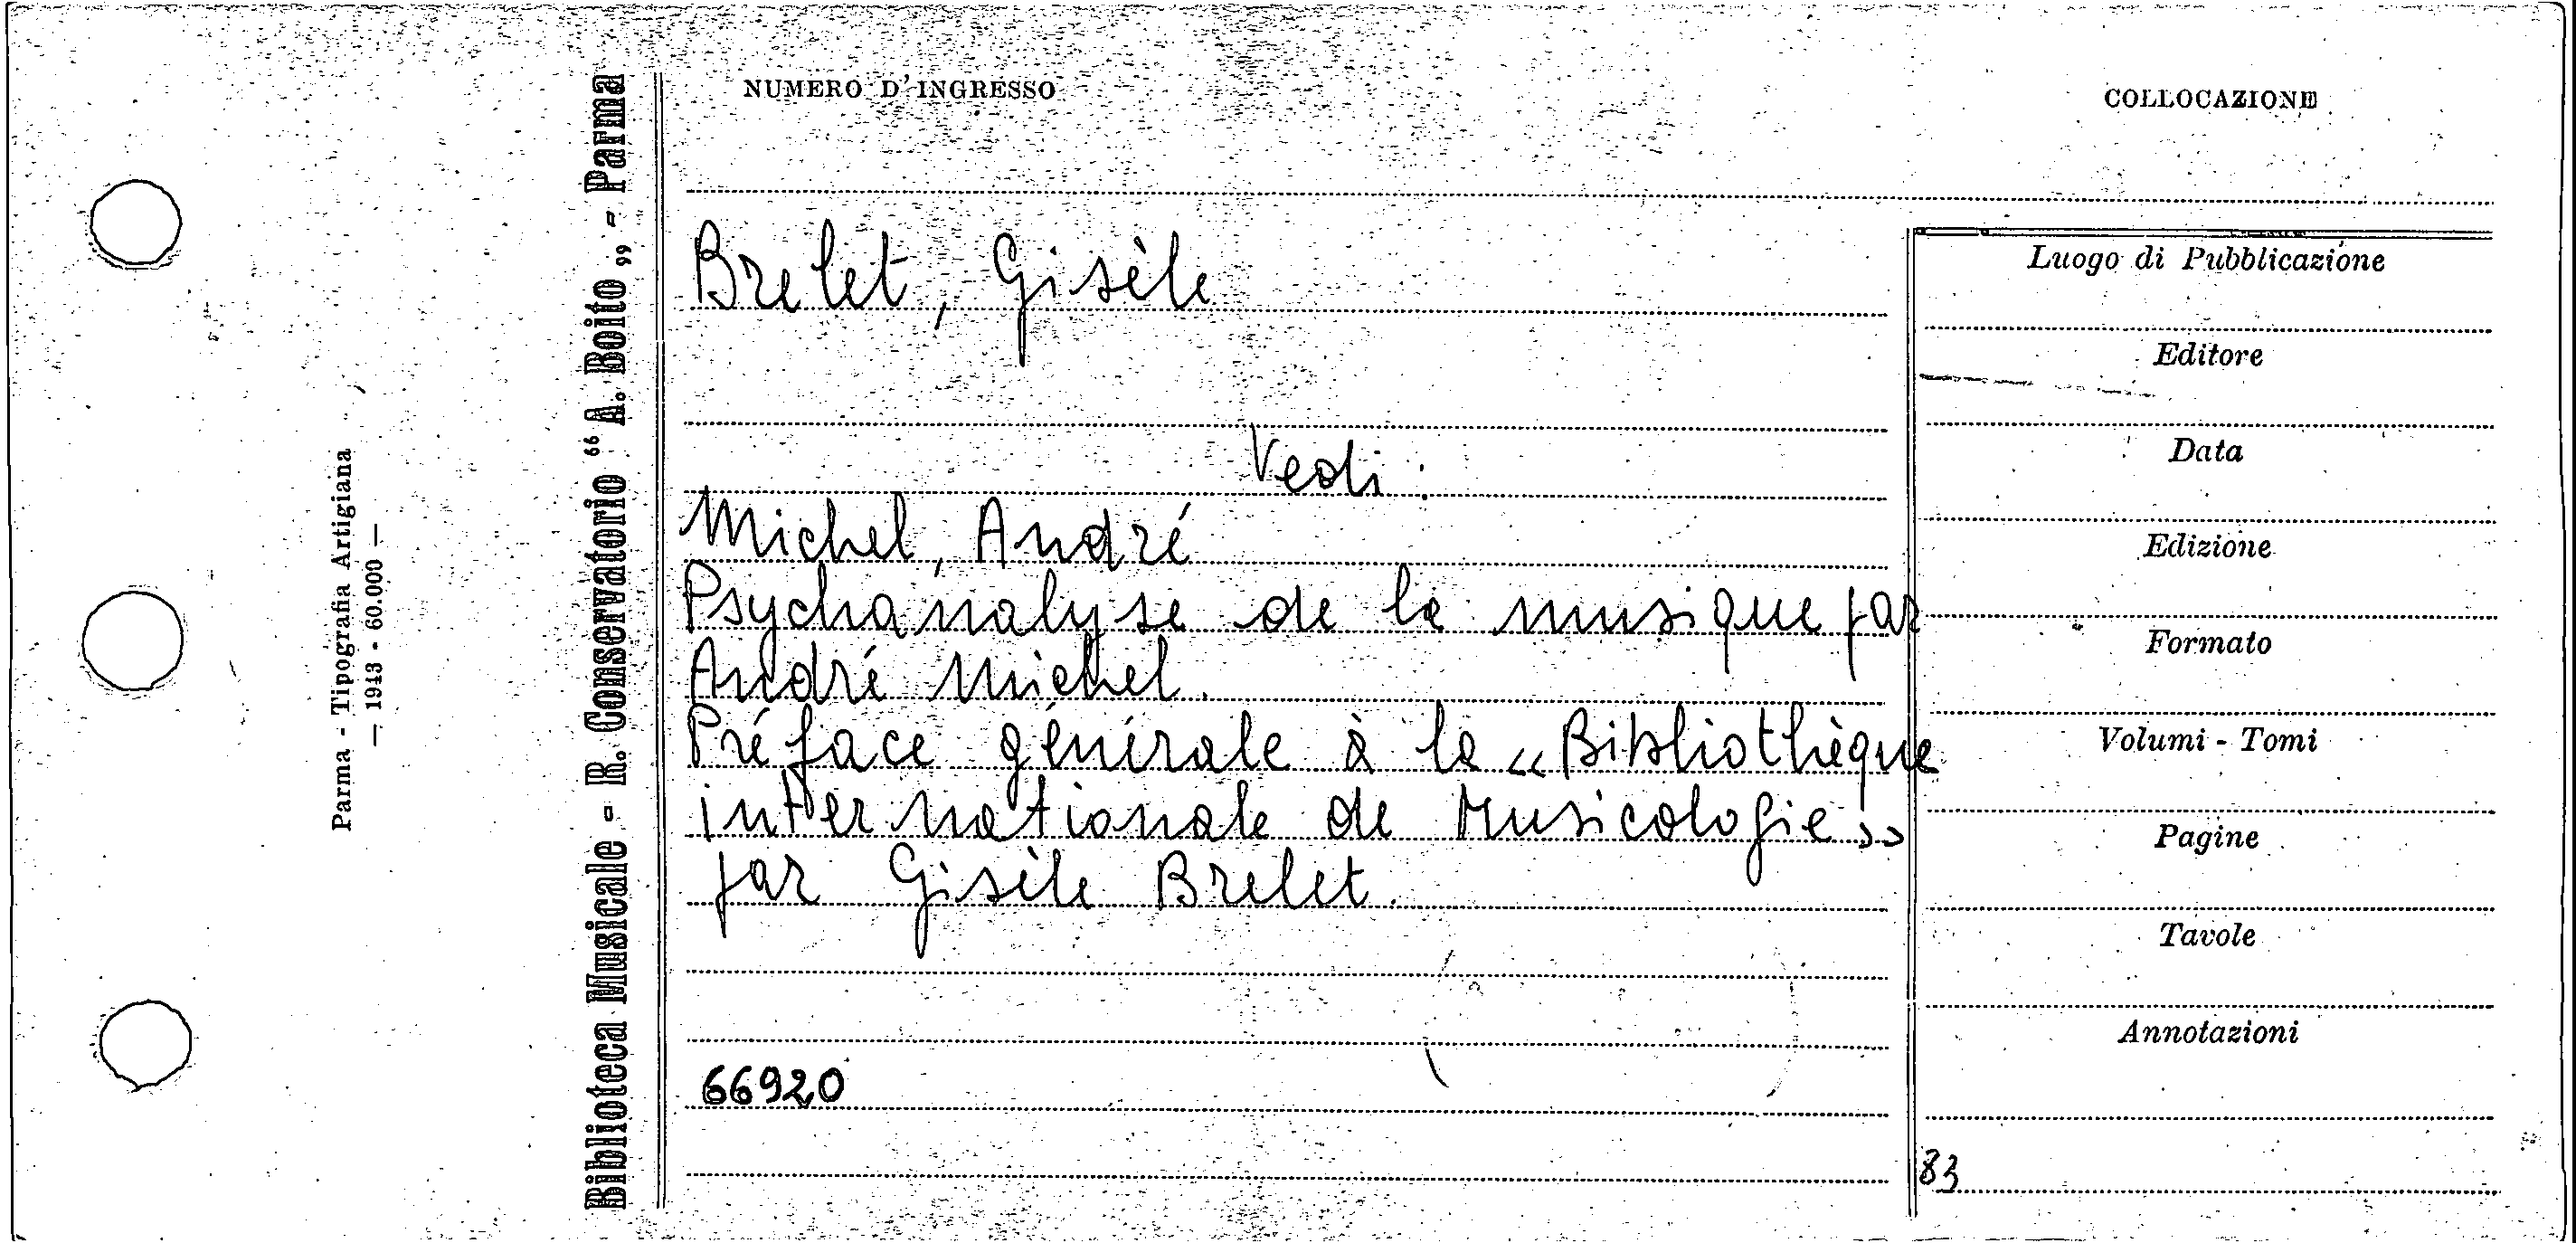 NUMERO D'INGRESSO
COLLOCAZIONE
Biblioteca Musicale - R. Conservatorio “A. Boito„ - Parma
Parma - Tipografia Artigiana
— 1943 - 60.000 —
Brelet, Gisèle
Vedi:
Michel, André
Psychanalyse de la musique par
André Michel.
Préface générale à la «Bibliothèque
internationale de Musicologie»
par Gisèle Brelet.
66920
Luogo di Pubblicazione
Editore
Data
Edizione
Formato
Volumi - Tomi
Pagine
Tavole
Annotazioni
83